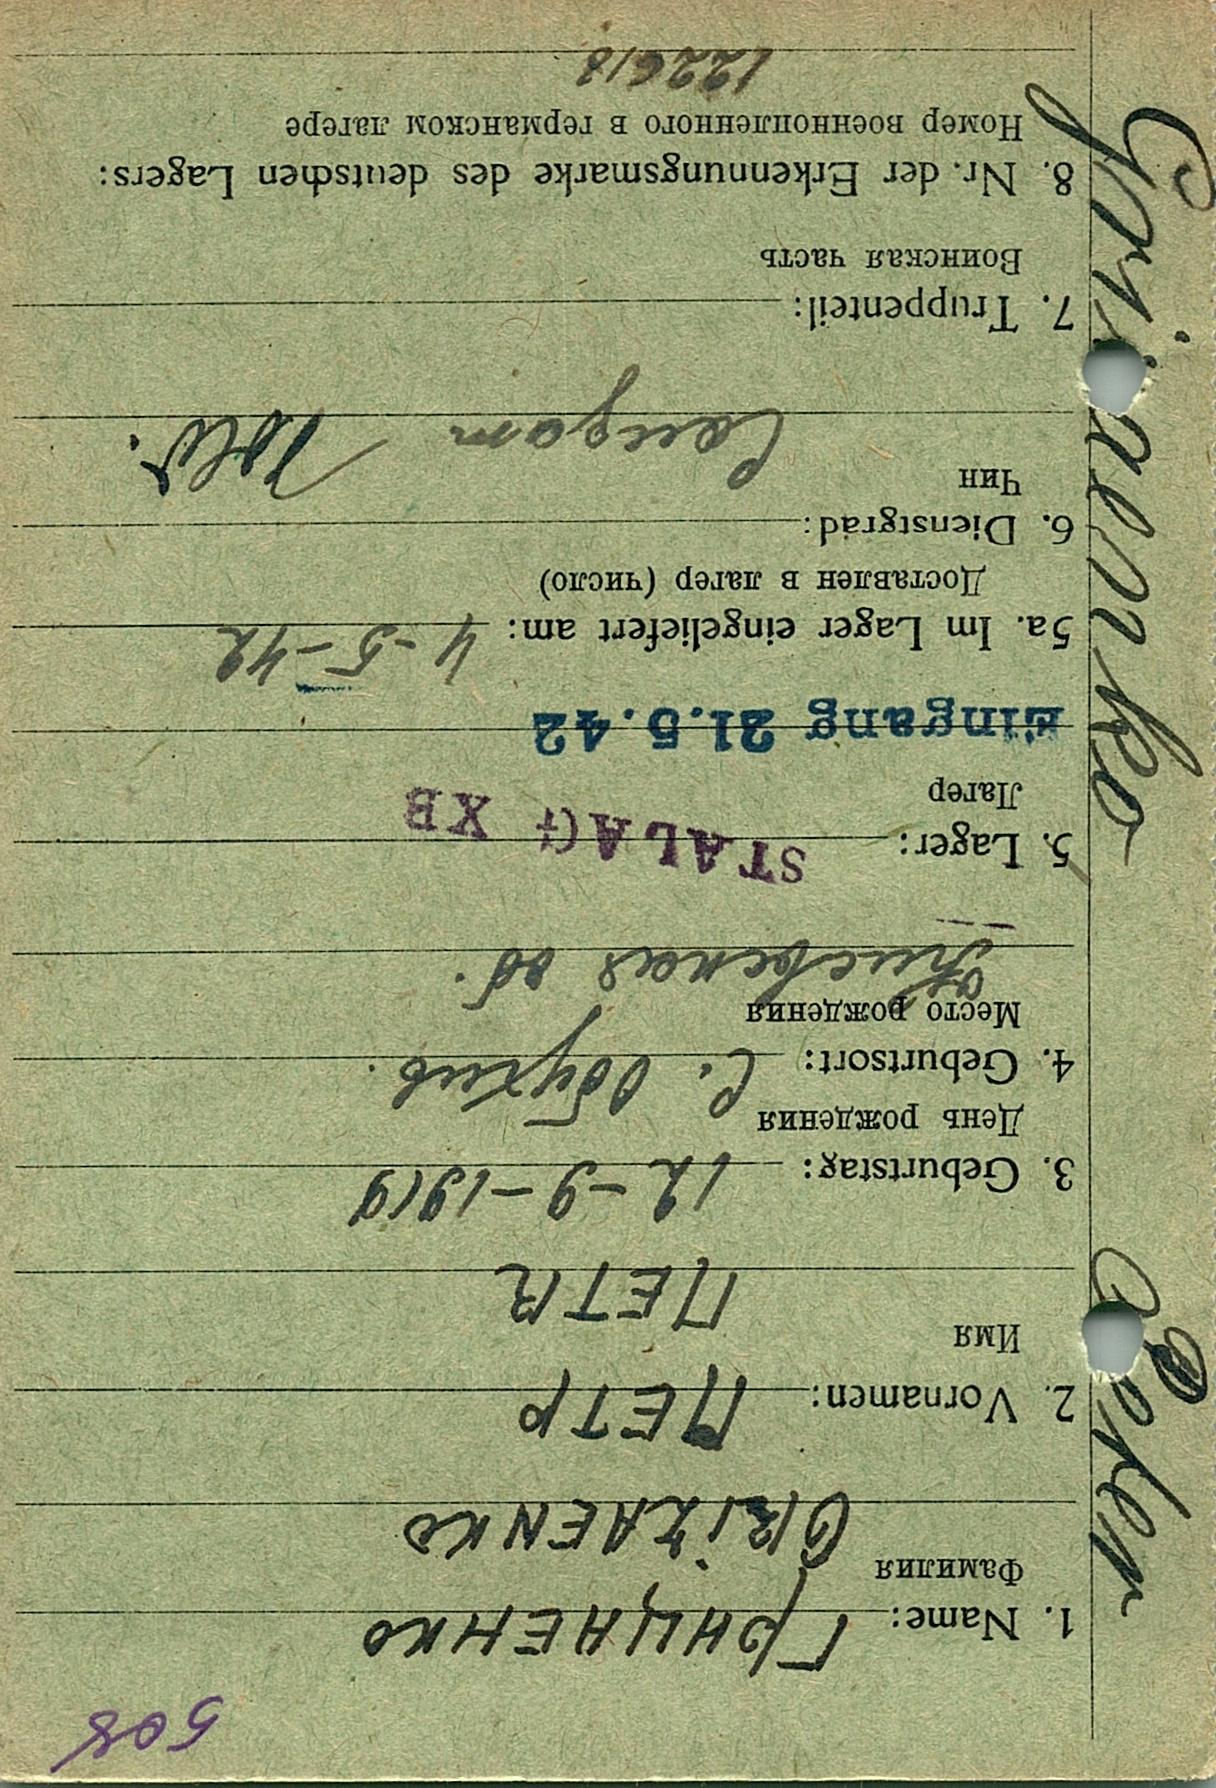 508
1. Name: Грицаенко
Фамилия
GRIZAENKO
2. Vornamen: ПЕТР
Имя
ПЕТR
3. Geburtstag: 12-9-1919
День рождения
4. Geburtsort: С. Обухив.
Место рождения
Киевская об.
5. Lager: STALAG XB
Лагер
Eingang 21.5.42
5a. Im Lager eingeliefert am: 4-5-42
Доставлен в лагер (число)
6. Dienstgrad:
Чин
Солдат
7. Truppenteil:
Воинская часть
8. Nr. der Erkennungsmarke des deutschen Lagers:
Номер военнопленного в германском лагере
122618
Grizaenko Peter